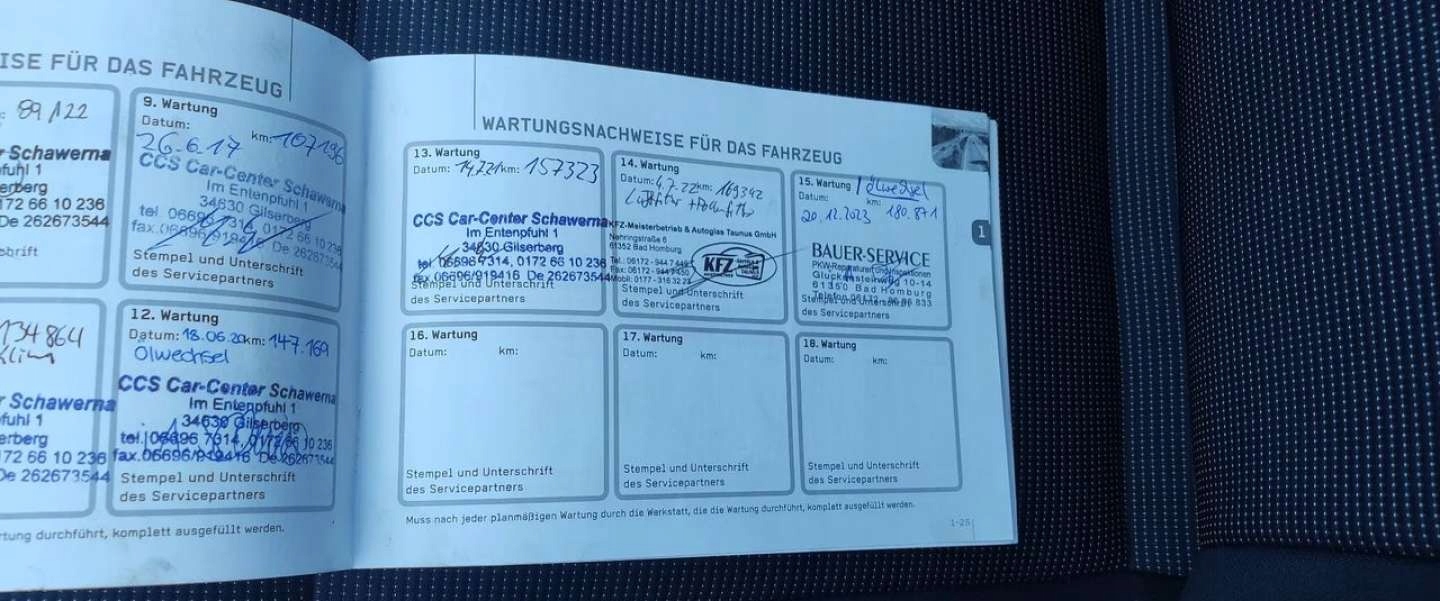 ISE FÜR DAS FAHRZEUG
89122
Schawerna
fuhl 1
serberg
172 66 10 236
De 262673544
schrift
9. Wartung
Datum: km: 107196
26.6.17
CCS Car-Center Schawerna
Im Entenpfuhl 1
34630 Gilserberg
tel. 06696 7314, 0172 66 10 236
fax.06696/919416 De 262673544
Stempel und Unterschrift
des Servicepartners
134864
Schawerna
fuhl 1
serberg
172 66 10 236
De 262673544
12. Wartung
Datum: 18.06.20 km: 147.169
Ölwechsel
CCS Car-Center Schawerna
Im Entenpfuhl 1
34630 Gilserberg
tel. 06696 7314, 0172 66 10 236
fax.06696/919416 De 262673544
Stempel und Unterschrift
des Servicepartners
rtung durchführt, komplett ausgefüllt werden.
WARTUNGSNACHWEISE FÜR DAS FAHRZEUG
13. Wartung
Datum: km: 157323
CCS Car-Center Schawerna
Im Entenpfuhl 1
34630 Gilserberg
tel. 06696 7314, 0172 66 10 236
fax.06696/919416 De 262673544
Stempel und Unterschrift
des Servicepartners
14. Wartung
Datum: 4.7.22 km: 169342
Luftfilter + Pollenfilter
KFZ-Meisterbetrieb & Autoglas Taunus GmbH
Nehringstraße 6
61352 Bad Homburg
Tel.: 06172 - 944 7
Fax: 06172 - 944
Mobil: 0177 - 316 32 2
KFZ
Stempel und Unterschrift
des Servicepartners
15. Wartung / Ölwechsel
Datum: km:
20.12.2023 180.871
BAUER-SERVICE
PKW-Reparaturen und Inspektionen
Glückensteinweg 10-14
61350 Bad Homburg
Telefon 06172 - 96 96 833
Stempel und Unterschrift
des Servicepartners
1
16. Wartung
Datum: km:
Stempel und Unterschrift
des Servicepartners
17. Wartung
Datum: km:
Stempel und Unterschrift
des Servicepartners
18. Wartung
Datum: km:
Stempel und Unterschrift
des Servicepartners
Muss nach jeder planmäßigen Wartung durch die Werkstatt, die die Wartung durchführt, komplett ausgefüllt werden.
1-25